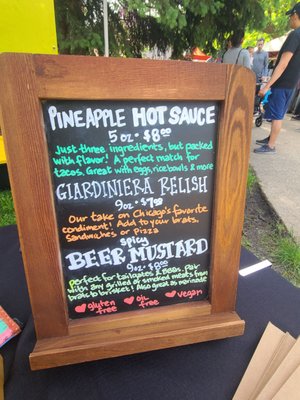 PINEAPPLE HOT SAUCE
5 oz · $8.00
Just three ingredients, but packed
with flavor! A perfect match for
tacos. Great with eggs, rice bowls & more
GIARDINIERA RELISH
9oz · $7.00
Our take on Chicago's favorite
condiment! Add to your brats,
Sandwiches or Pizza
spicy
BEER MUSTARD
9oz · $8.00
perfect for tailgates & BBQs. Pair
with any grilled or smoked meats from
brats to brisket! Also great as marinade
gluten free
oil free
vegan